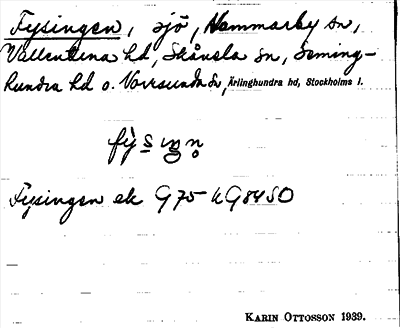 Fysingen, sjö, Hammarby sn,
Vallentuna hd, Skånela sn, Seming-
hundra hd o. Norrsunda sn, Ärlinghundra hd, Stockholms l.
Fysingen ek G75 kG84SO
KARIN OTTOSSON 1939.